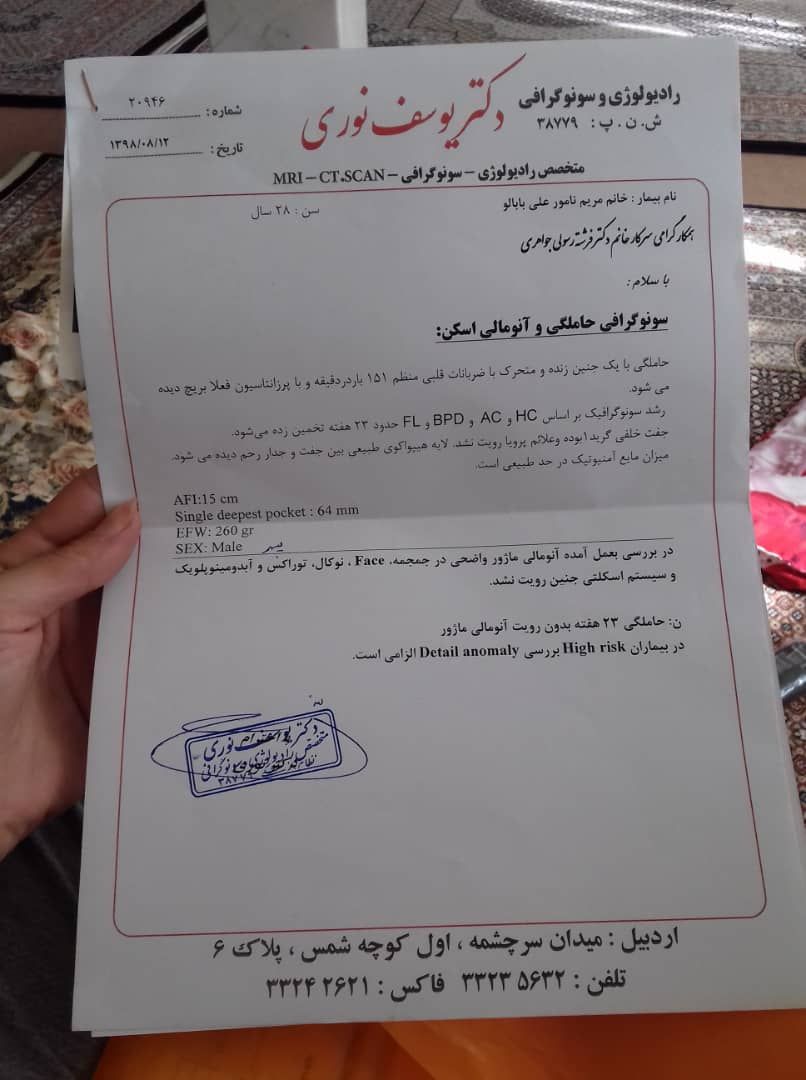 رادیولوژی و سونوگرافی
ش . ن . پ : ۳۸۷۷۹
دکتر یوسف نوری
شماره : ۲۰۹۴۶
تاریخ : ۱۳۹۸/۰۸/۱۲
متخصص رادیولوژی – سونوگرافی – MRI – CT.SCAN
نام بیمار : خانم مریم نامور علی بابالو
سن : ۲۸ سال
همکار گرامی سرکار خانم دکتر فرشته رسولی جواهری
با سلام :
سونوگرافی حاملگی و آنومالی اسکن:
حاملگی با یک جنین زنده و متحرک با ضربانات قلبی منظم ۱۵۱ باردردقیقه و با پرزانتاسیون فعلا بریچ دیده
می شود.
رشد سونوگرافیک بر اساس HC و AC و BPD و FL حدود ۲۳ هفته تخمین زده می‌شود.
جفت خلفی گرید۱بوده وعلائم پرویا رویت نشد. لایه هیپواکوی طبیعی بین جفت و جدار رحم دیده می شود.
میزان مایع آمنیوتیک در حد طبیعی است.
AFI:15 cm
Single deepest pocket : 64 mm
EFW: 260 gr
SEX: Male پسر
در بررسی بعمل آمده آنومالی ماژور واضحی در جمجمه، Face ، نوکال، توراکس و آبدومینوپلویک
و سیستم اسکلتی جنین رویت نشد.
ن: حاملگی ۲۳ هفته بدون رویت آنومالی ماژور
در بیماران High risk بررسی Detail anomaly الزامی است.
دکتر یوسف نوری
متخصص رادیولوژی و سونوگرافی
۳۸۷۷۹
اردبیل : میدان سرچشمه ، اول کوچه شمس ، پلاک ۶
تلفن : ۳۳۲۳ ۵۶۳۲ فاکس : ۳۳۲۴ ۲۶۲۱